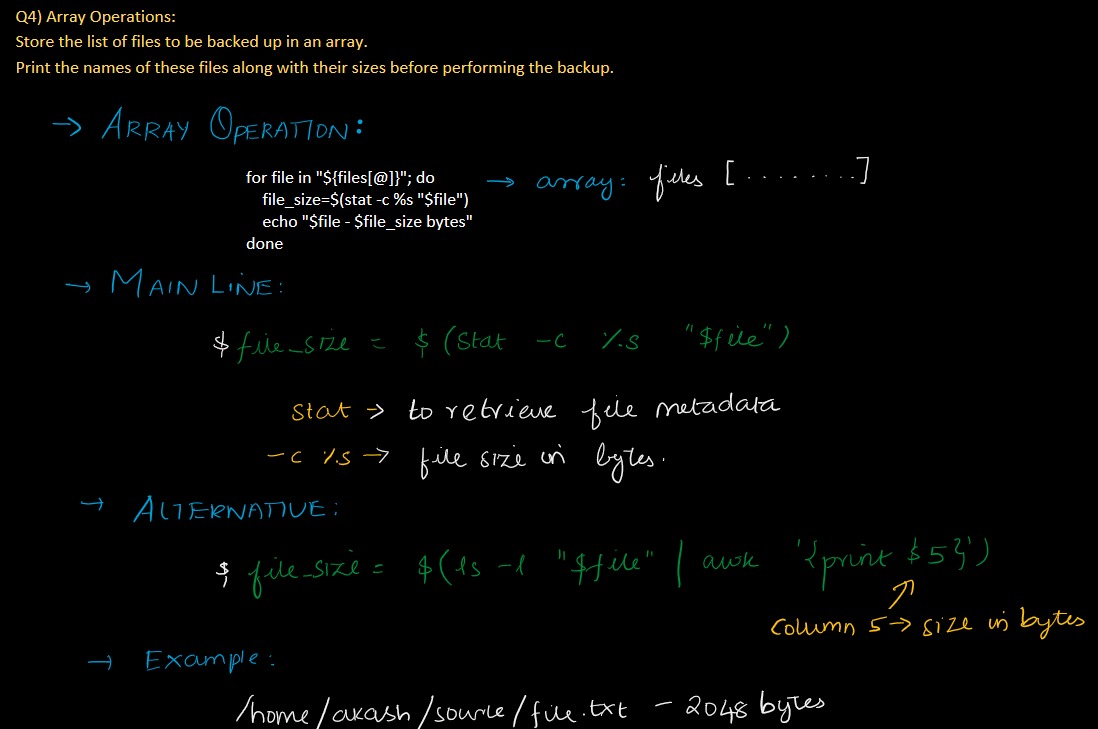 Q4) Array Operations:
Store the list of files to be backed up in an array.
Print the names of these files along with their sizes before performing the backup.
→ ARRAY OPERATION:
for file in "${files[@]}"; do → array: files [ . . . . . . . . ]
file_size=$(stat -c %s "$file")
echo "$file - $file_size bytes"
done
→ MAIN LINE:
$ file_size = $ (stat -c %s "$file")
stat → to retrieve file metadata
-c %s → file size in bytes.
→ ALTERNATIVE:
$ file_size = $(ls -l "$file" | awk '{print $5}')
column 5 → size in bytes
→ Example:
/home/akash/source/file.txt - 2048 bytes